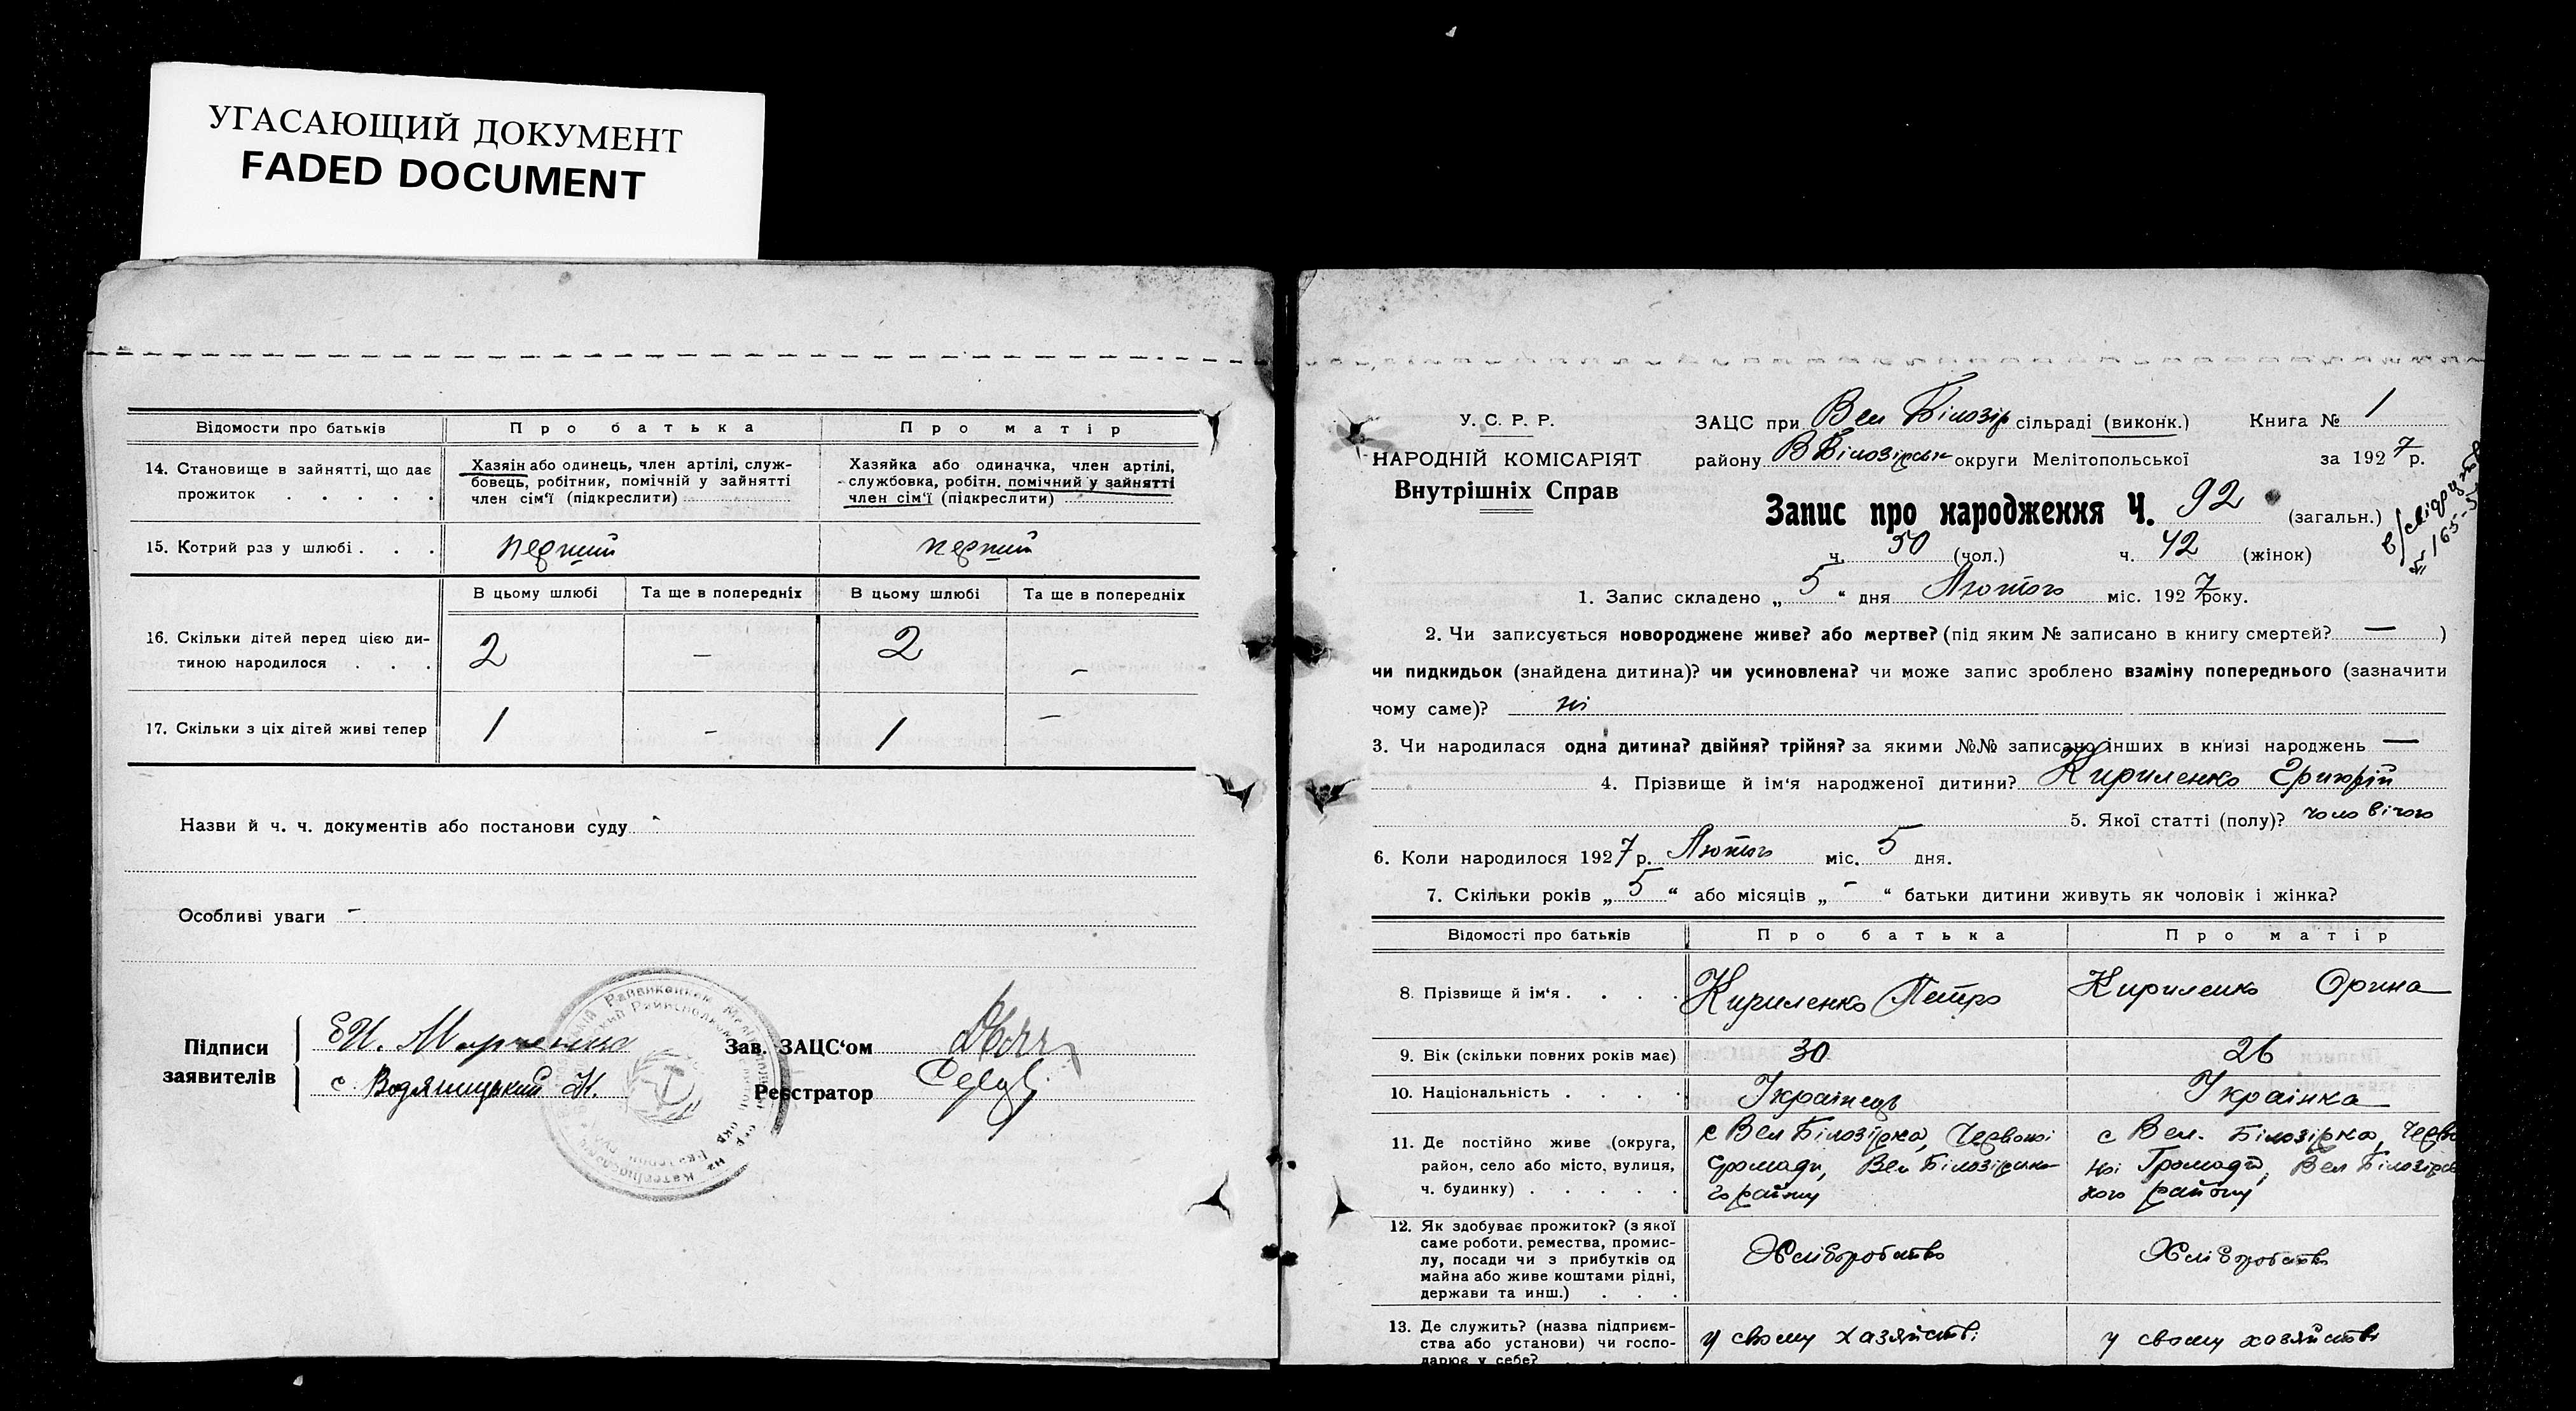 УГАСАЮЩИЙ ДОКУМЕНТ
FADED DOCUMENT
Відомости про батьків Про батька Про матір
14. Становище в зайнятті, що дає
прожиток . . . . .
Хазяін або одинець, член артілі, служ-
бовець, робітник, помічній у зайнятті
член сім'ї (підкреслити)
Хазяйка або одиначка, член артілі,
службовка, робітн. помічний у зайнятті
член сім'ї (підкреслити)
15. Котрий раз у шлюбі . . . перший перший
В цьому шлюбі Та ще в попередніх В цьому шлюбі Та ще в попередніх
16. Скільки дітей перед цією ди-
тиною народилося . . . 2 – 2 –
17. Скільки з ціх дітей живі тепер 1 – 1 –
Назви й ч. ч. документів або постанови суду -
Особливі уваги -
Підписи
заявителів
с. Водяницький К.
Зав. ЗАЦС'ом
Реєстратор
У. С. Р. Р.
НАРОДНІЙ КОМІСАРІЯТ
Внутрішніх Справ
ЗАЦС при Вел Білозір сільраді (виконк.) Книга № 1
району В Білозірськ округи Мелітопольської за 1927 р.
Запис про народження Ч. 92 (загальн.)
ч. 50 (чол.) ч. 42 (жінок)
1. Запис складено „ 5 “ дня Лютого міс. 1927 року.
2. Чи записується новороджене живе? або мертве? (під яким № записано в книгу смертей? — )
чи пидкидьок (знайдена дитина)? чи усиновлена? чи може запис зроблено взаміну попереднього (зазначити
чому саме)? ні
3. Чи народилася одна дитина? двійня? трійня? за якими №№ записано інших в книзі народжень —
4. Прізвище й ім'я народженої дитини? Кириленко Григорій
5. Якої статті (полу)? чоловічого
6. Коли народилося 1927 р. Лютого міс. 5 дня.
7. Скільки років „ 5 “ або місяців „ - “ батьки дитини живуть як чоловік і жінка?
Відомості про батьків Про батька Про матір
8. Прізвище й ім'я . . . . Кириленко Петро Кириленко Орина
9. Вік (скільки повних років має) 30 26
10. Національність . . . . Українець Українка
11. Де постійно живе (округа,
район, село або місто, вулиця,
ч. будинку) . . . . .
с Вел Білозірка, Червоної
Громади, Вел Білозірсько-
го району
с Вел. Білозірка, Черво
ної Громади, Вел Білозірсь
кого району
12. Як здобуває прожиток? (з якої
саме роботи, ремества, промис-
лу, посади чи з прибутків од
майна або живе коштами рідні,
держави та инш.) . . .
Хліборобство Хліборобство
13. Де служить? (назва підприєм-
ства або установи) чи госпо-
дарює у себе?
у своему хазяйстві у своему хазяйстві